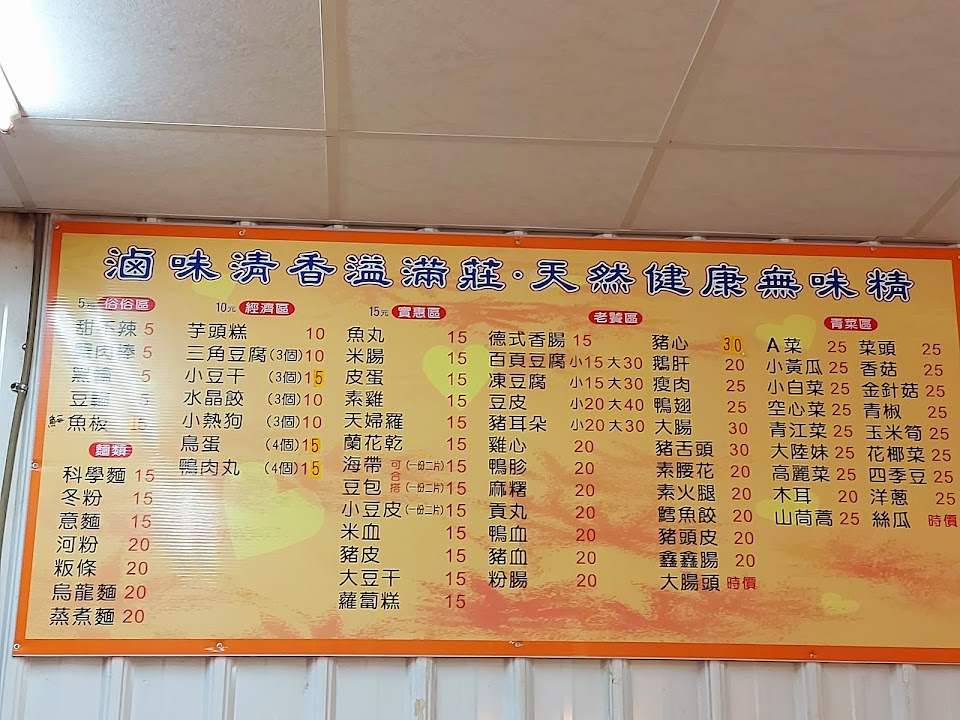 滷味清香溢滿莊·天然健康無味精
5元 俗俗區
甜不辣 5
5
黑輪 5
豆 5
魚板 15
麵類
科學麵 15
冬粉 15
意麵 15
河粉 20
粄條 20
烏龍麵 20
蒸煮麵 20
10元 經濟區
芋頭糕 10
三角豆腐(3個)10
小豆干 (3個)15
水晶餃 (3個)10
小熱狗 (3個)10
鳥蛋 (4個)15
鴨肉丸 (4個)15
15元 實惠區
魚丸 15
米腸 15
皮蛋 15
素雞 15
天婦羅 15
蘭花乾 15
海帶 可合搭 (一份二片) 15
豆包 (一份二片) 15
小豆皮 (一份二片) 15
米血 15
豬皮 15
大豆干 15
蘿蔔糕 15
老饕區
德式香腸 15
百頁豆腐 小15 大30
凍豆腐 小15 大30
豆皮 小20 大40
豬耳朵 小20 大30
雞心 20
鴨胗 20
麻糬 20
貢丸 20
鴨血 20
豬血 20
粉腸 20
豬心 30
鵝肝 20
瘦肉 25
鴨翅 25
大腸 30
豬舌頭 30
素腰花 20
素火腿 20
鱈魚餃 20
豬頭皮 20
鑫鑫腸 20
大腸頭 時價
青菜區
A菜 25
小黃瓜 25
小白菜 25
空心菜 25
青江菜 25
大陸妹 25
高麗菜 25
木耳 20
山茼蒿 25
菜頭 25
香菇 25
金針菇 25
青椒 25
玉米筍 25
花椰菜 25
四季豆 25
洋蔥 25
絲瓜 時價